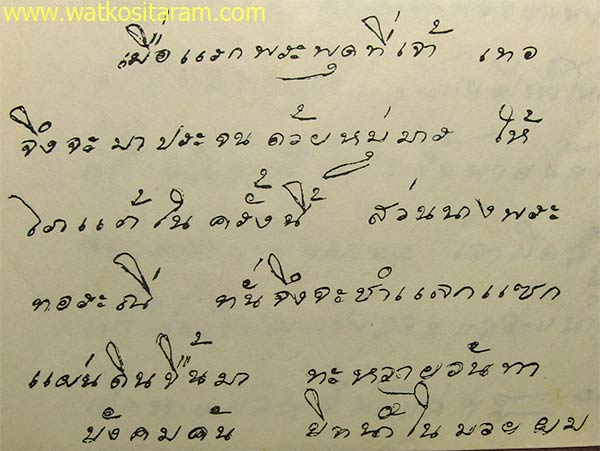 www.watkositaram.com
เมื่อแรกพระพุดที่เจ้า เทอ
จึงจะมาประจนด้วยหมู่มาร ให้
ไภแก้ในครั้งนี้ ส่วนนางพระ
ทอระณี ทั่นจึงจะชำแลกแซก
แผ่นดินขึ้นมา ทะหวายวันทา
บังคมคัน บิทน้ำในมวยผม